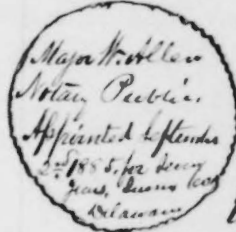 Major W. Allen
Notary Public.
Appointed September
2nd 1885, for four
years, Sussex Co
Delaware